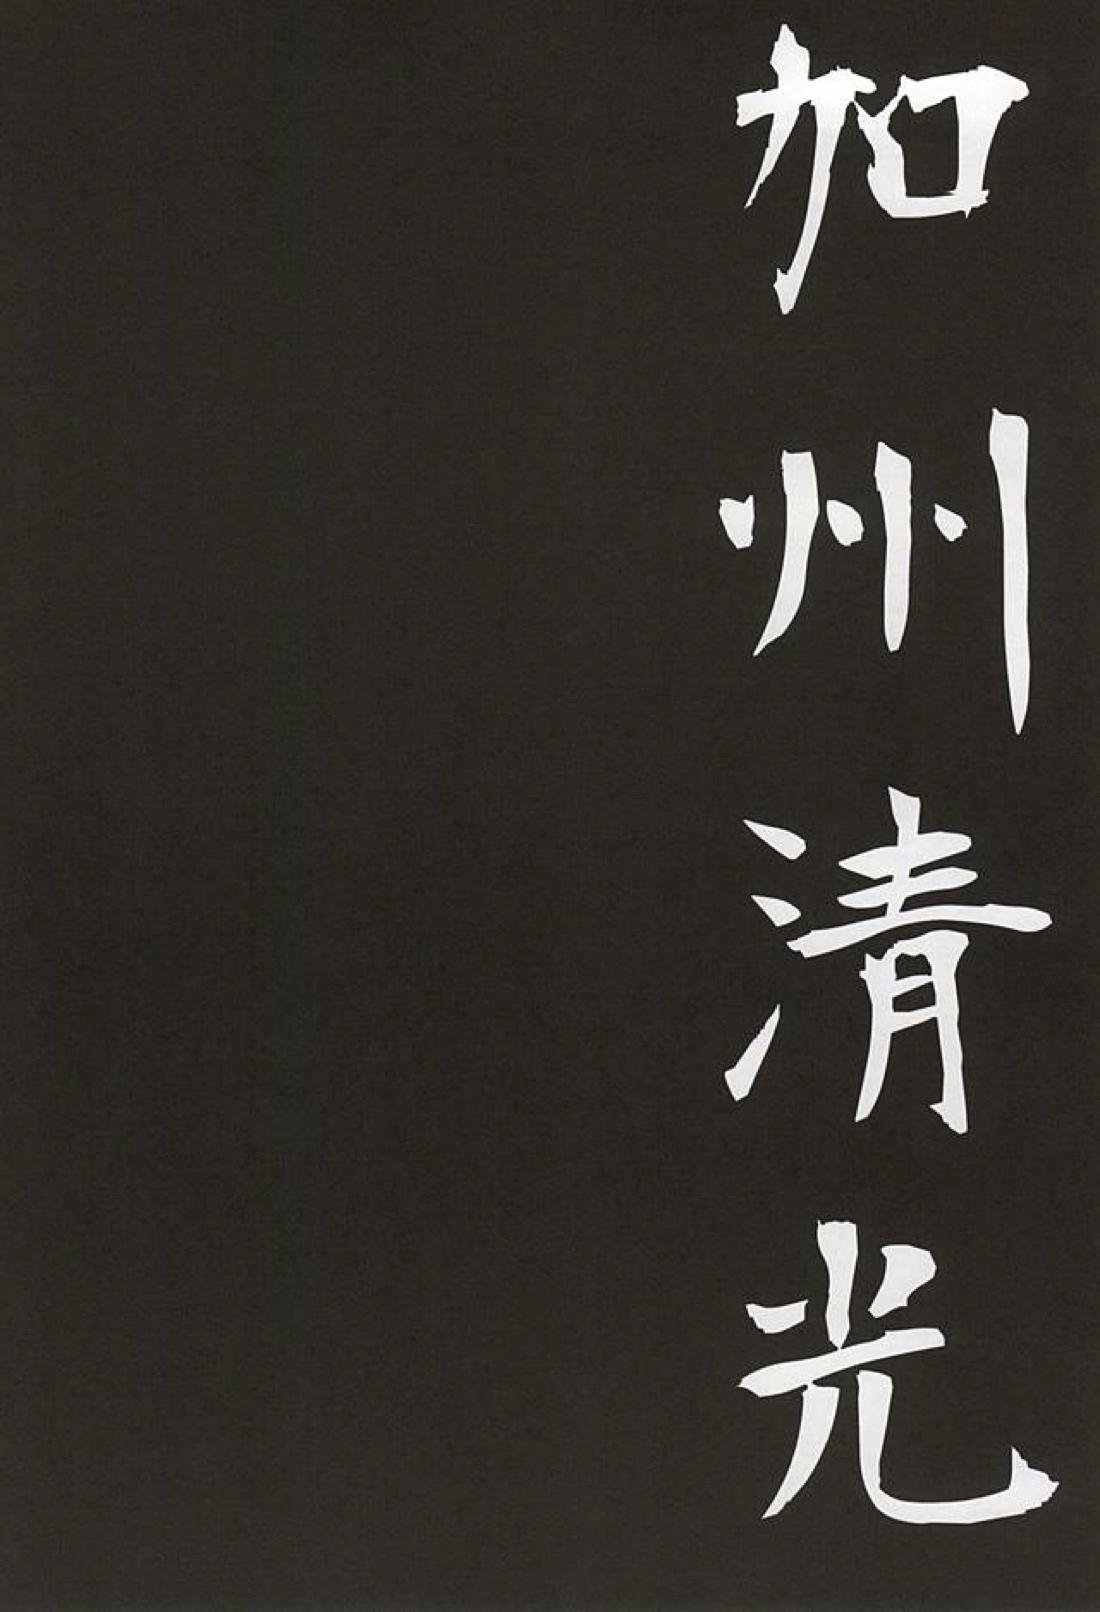 加州清光